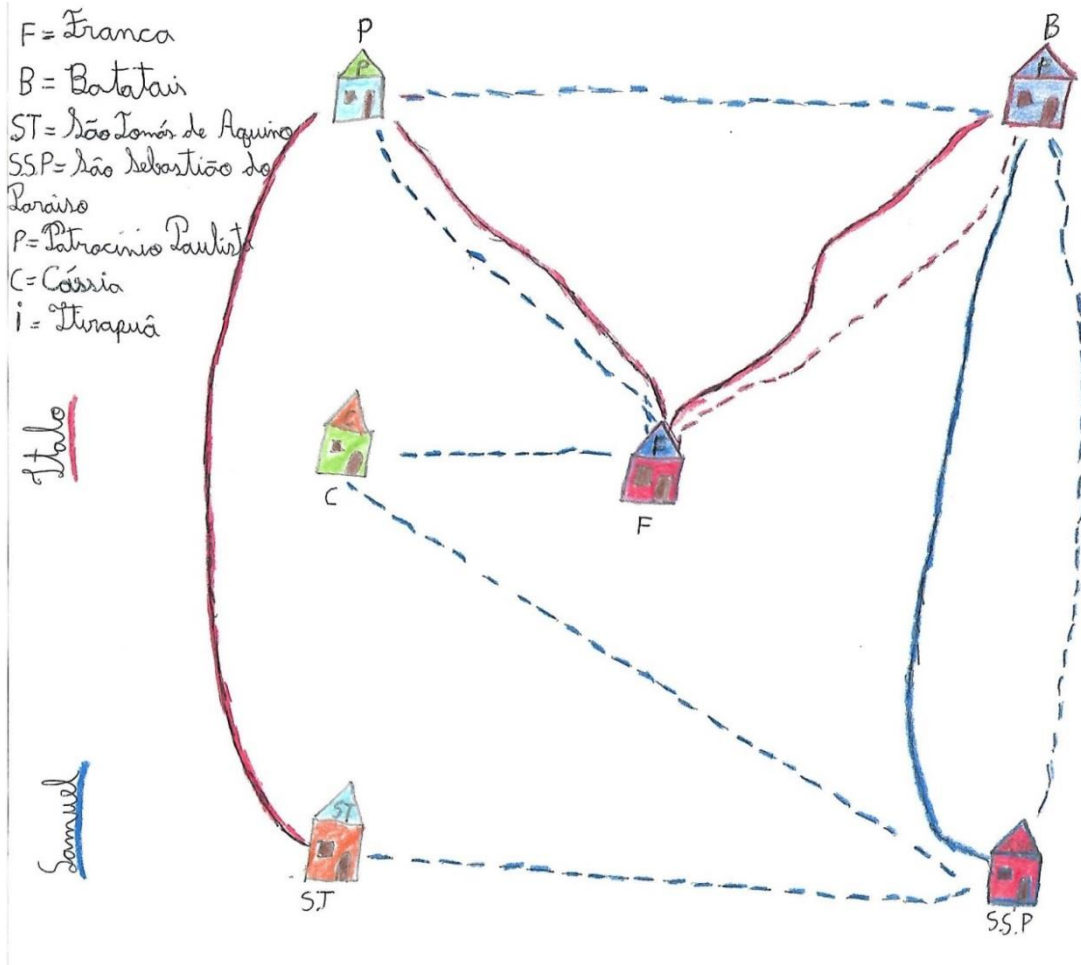 F = Franca
B = Batatais
ST = São Tomás de Aquino
S.S.P = São Sebastião do
Paraiso
P = Patrocínio Paulista
C = Cássia
i = Itirapuã
Italo
Samuel
P
P
B
P
C
F
F
ST
S.T
S.S.P